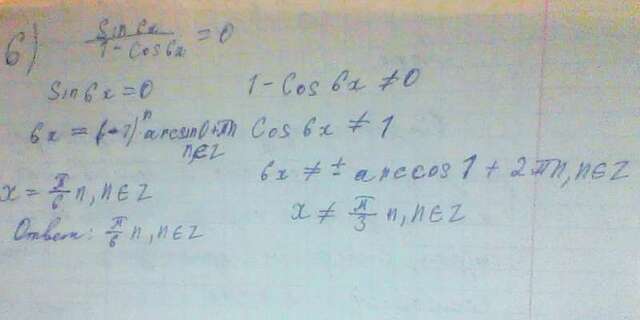 б) sin 6x / 1 - cos 6x = 0
sin 6x = 0 1 - cos 6x ≠ 0
6x = (-1)ⁿ arcsin 0 + πn cos 6x ≠ 1
n∈Z
6x ≠ ± arccos 1 + 2πn, n∈Z
x = π/6 n, n∈Z
x ≠ π/3 n, n∈Z
Ответ: π/6 n, n∈Z